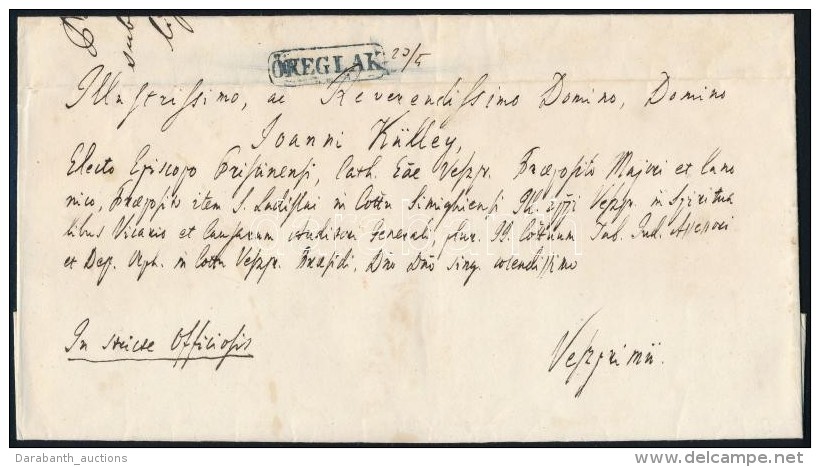 ÖREGLAK 20/5
Illustrissimo, ac Reverendissimo Domino, Domino
Joanni Küller,
Electo Episcopo Pristinensi, Cath. Eae Veszpr. Praeposito Majori et Cano
nico, Praeposito item S. Ladislai in Cottu Simighiensi Veszpr. in Spiritua
libus Vicario et Causarum Auditori Generali, plur. II. Cottuum Tab. Jud. Assessori
et Dep. Orph. in Cottu Veszpr. Praesidi, Dno Dno sing. colendissimo
In Officiosis
Veszprimii.
Darabanth_auctions
delcampe.net